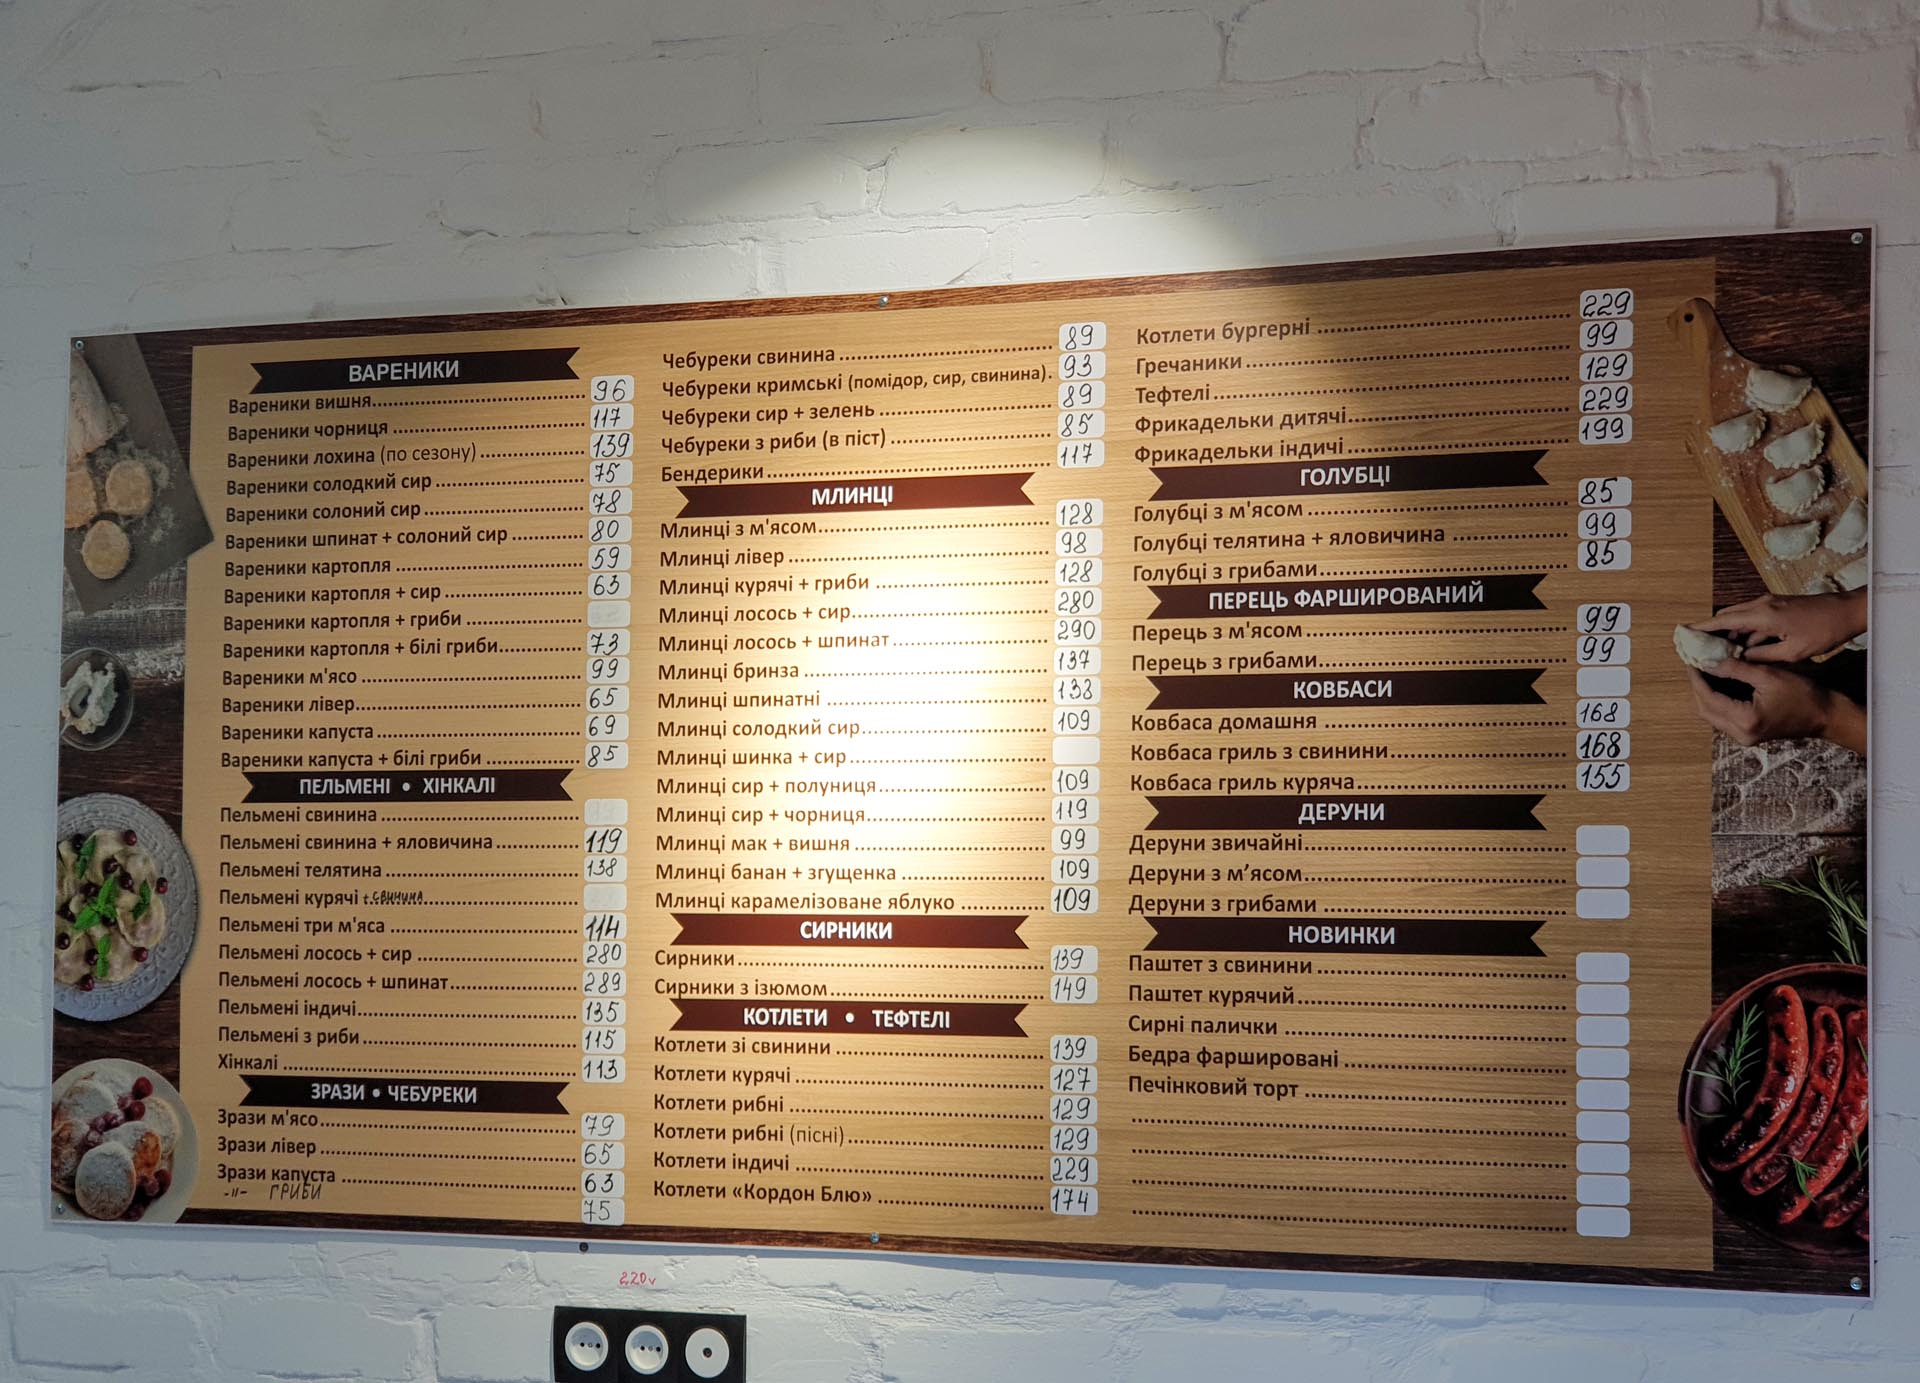 ВАРЕНИКИ
Вареники вишня 96
Вареники чорниця 117
Вареники лохина (по сезону) 139
Вареники солодкий сир 75
Вареники солоний сир 78
Вареники шпинат + солоний сир 80
Вареники картопля 59
Вареники картопля + сир 63
Вареники картопля + гриби
Вареники картопля + білі гриби 73
Вареники м'ясо 99
Вареники лівер 65
Вареники капуста 69
Вареники капуста + білі гриби 85
ПЕЛЬМЕНІ • ХІНКАЛІ
Пельмені свинина
Пельмені свинина + яловичина 119
Пельмені телятина 138
Пельмені курячі + свинина
Пельмені три м'яса 114
Пельмені лосось + сир 280
Пельмені лосось + шпинат 289
Пельмені індичі 135
Пельмені з риби 115
Хінкалі 113
ЗРАЗИ • ЧЕБУРЕКИ
Зрази м'ясо 79
Зрази лівер 65
Зрази капуста 63
-"- ГРИБИ 75
Чебуреки свинина 89
Чебуреки кримські (помідор, сир, свинина). 93
Чебуреки сир + зелень 89
Чебуреки з риби (в піст) 85
Бендерики 117
МЛИНЦІ
Млинці з м'ясом 128
Млинці лівер 98
Млинці курячі + гриби 128
Млинці лосось + сир 280
Млинці лосось + шпинат 290
Млинці бринза 137
Млинці шпинатні 133
Млинці солодкий сир 109
Млинці шинка + сир
Млинці сир + полуниця 109
Млинці сир + чорниця 119
Млинці мак + вишня 99
Млинці банан + згущенка 109
Млинці карамелізоване яблуко 109
СИРНИКИ
Сирники 139
Сирники з ізюмом 149
КОТЛЕТИ • ТЕФТЕЛІ
Котлети зі свинини 139
Котлети курячі 127
Котлети рибні 129
Котлети рибні (пісні) 129
Котлети індичі 229
Котлети «Кордон Блю» 174
Котлети бургерні 229
Гречаники 99
Тефтелі 129
Фрикадельки дитячі 229
Фрикадельки індичі 199
ГОЛУБЦІ
Голубці з м'ясом 85
Голубці телятина + яловичина 99
Голубці з грибами 85
ПЕРЕЦЬ ФАРШИРОВАНИЙ
Перець з м'ясом 99
Перець з грибами 99
КОВБАСИ
Ковбаса домашня 168
Ковбаса гриль з свинини 168
Ковбаса гриль куряча 155
ДЕРУНИ
Деруни звичайні
Деруни з м’ясом
Деруни з грибами
НОВИНКИ
Паштет з свинини
Паштет курячий
Сирні палички
Бедра фаршировані
Печінковий торт
220v